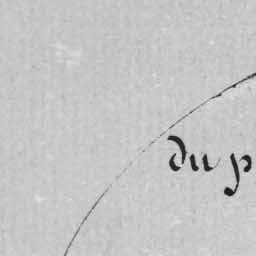 du p